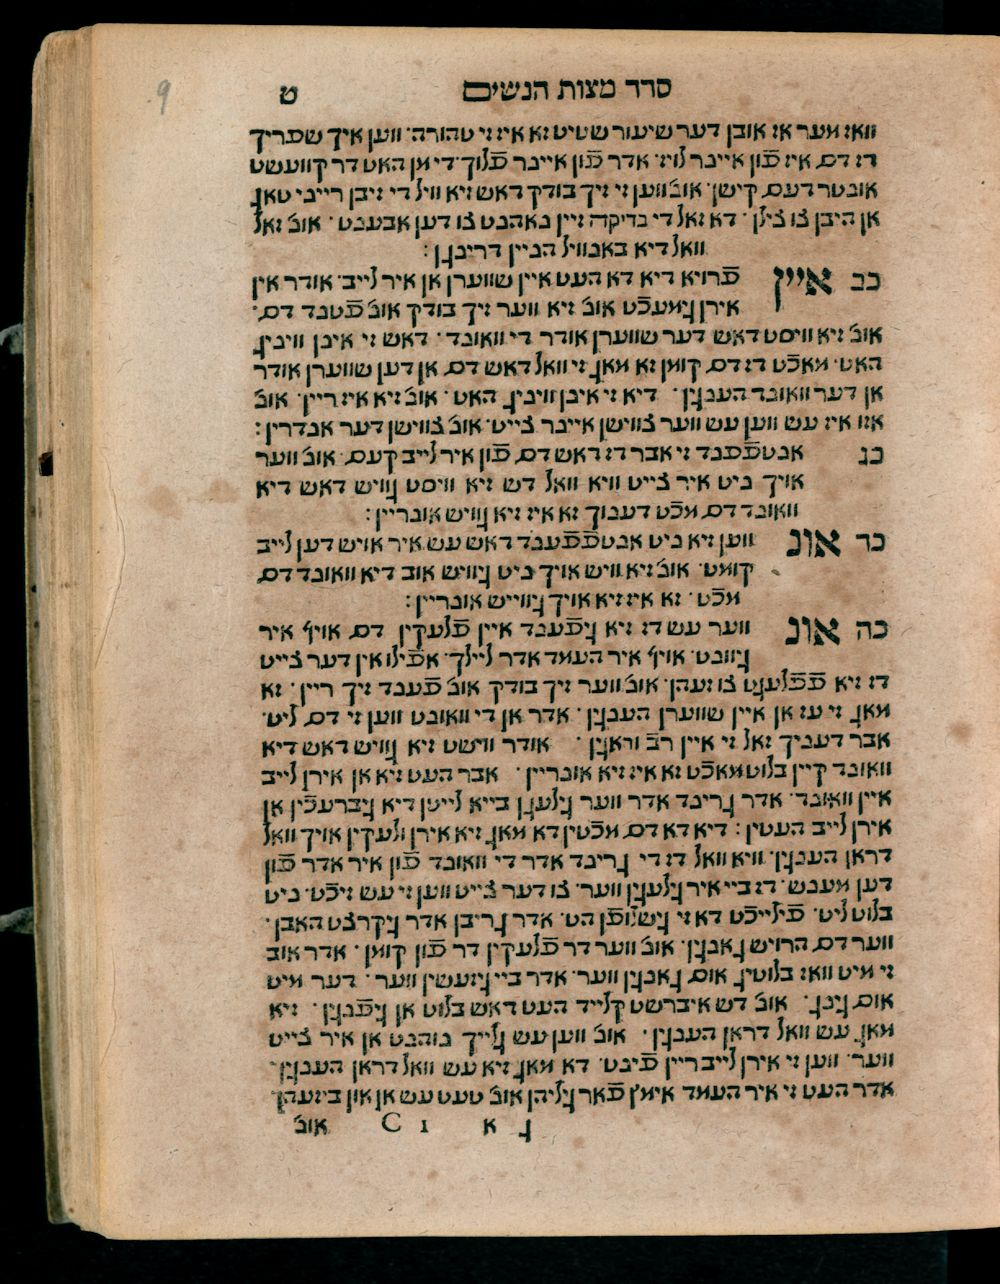 9
סדר מצות הנשים ט
וואז מער אז אובן דער שיעור שטיט זא איז זי טהורה׃ ווען איך שפריך
דז דם איז פֿון איינר לויז׳ אדר פֿון איינר פֿלוך׳ די מן האט דר קוועשט
אונטר דעם קישן׳ אונ׳ ווען זי זיך בודק דאש זיא וויל די זיבן רייני טאג
אן היבן צו צילן׳ דא זאל די בדיקה זיין נאהנט צו דען אבענט׳ אונ׳ זאל
וואל דיא באנוויל הניין דרינגן׃
כב איין פֿרויא דיא דא העט איין שווערן אן איר לייב׳ אודר אין
אירן גימעכֿט אונ׳ זיא ווער זיך בודק אונ׳ פֿטנד דם׳
אונ׳ זיא וויסט דאש דער שווערן אודר די וואונד׳ דאש זי אינן וויניג
האט׳ מאכֿט דז דם קומן זא מאג זי וואל דאש דם אן דען שווערן אודר
אן דער וואונד הענגין׳ דיא זי אינן וויניג האט׳ אונ׳ זיא איז ריין׳ אונ׳
אזו איז עש ווען עש ווער צווישן איינר צייט׳ אונ׳ צווישן דער אנדרין׃
כג אנטפֿפֿנד זי אבר דז דאש דם פֿון איר לייב קעם׳ אונ׳ ווער
אויך ניט איר צייט וויא וואל דש זיא וויסט גוויש דאש דיא
וואונד דם מכֿט דענוך זא איז זיא גוויש אונריין׃
כד אונ ווען זיא ניט אנטפֿפֿענד דאש עש איר אויש דען לייב
קומט׳ אונ׳ זיא וויש אויך ניט גיוויש אוב דיא וואונד דם
מכֿט׳ זא איז זיא אויך גיווייש אונריין׃
כה אונ ווער עש דז זיא גיפֿענד איין פֿלעקין דם אויף איר
גיוונט׳ אויף איר העמד אדר ליילך׳ אפֿילו אין דער צייט
דז זיא פֿפֿלעגט צו זעהן׳ אונ׳ ווער זיך בודק אונ׳ פֿענד זיך ריין׳ זא
מאג זי עז אן איין שווערן הענגין׳ אדר אן די וואונט ווען זי דם ליט׳
אבר דעניך זאל זי איין רב֞ וראגין׳ אודר ווישט זיא גוויש דאש דיא
וואונד קיין בלוט מאכֿט זא איז זיא אונריין׳ אבר העט זיא אן אירן לייב
איין וואונד׳ אדר גרינד אדר ווער גילעגן בייא לייטן דיא גיברעכֿין אן
אירן לייב העטין׃ דיא דא דם מכֿטין דא מאג זיא אירן ולעקין אויך וואל
דראן העגגין׳ וויא וואל דז די גרינד אדר די וואונד פֿון איר אדר פֿון
דען מענש׳ דז ביי איר גילעגין ווער׳ צו דער צייט ווען זי עש זיכֿט׳ ניט
בלוט ליט׳ פֿילייכֿט דא זי גישלופֿן הט׳ אדר גריבן אדר גיקרצט האבן׳
ווער דם הרויש גאנגין׳ אונ׳ ווער דר פֿלעקין דר פֿון קומן׳ אדר אוב
זי מיט וואז בלוטיג אום גאנגין ווער׳ אדר ביי גיזעשין ווער׳ דער מיט
אום גינג׳ אונ׳ דש איברשט קלייד העט דאש בלוט אן גיפֿנגין׳ זיא
מאג עש וואל דראן העגגין׳ אונ׳ ווען עש גלייך נוהנט אן איר צייט
ווער׳ ווען זי אירן לייב ריין פֿינט׳ דא מאג זיא עש וואל דראן העגגין׳
אדר העט זי איר העמד אימץ פֿאר גיליהן אונ׳ טעט עש אן און ביזעהן
ג א C 1 אונ׳